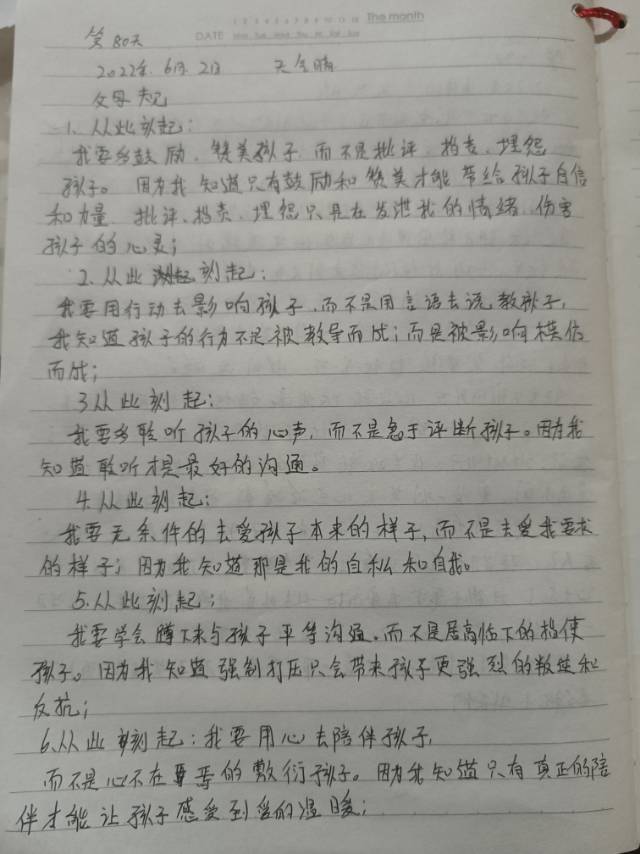 The month
DATE
第80天
2022年.6月.2日 天气晴
父母规
1.从此刻起:
我要多鼓励、赞美孩子,而不是批评、指责、埋怨
孩子。因为我知道只有鼓励和赞美才能带给孩子自信
和力量,批评、指责、埋怨只是在发泄我的情绪、伤害
孩子的心灵;
2.从此刻起:
我要用行动去影响孩子,而不是用言语去说教孩子,
我知道孩子的行为不是被教导而成;而是被影响模仿
而成;
3从此刻起:
我要多聆听孩子的心声,而不是急于评断孩子。因为我
知道聆听才是最好的沟通。
4.从此刻起:
我要无条件的去爱孩子本来的样子,而不是去爱我要求
的样子;因为我知道那是我的自私和自我。
5.从此刻起;
我要学会蹲下来与孩子平等沟通,而不是居高临下的指使
孩子。因为我知道强制打压只会带来孩子更强烈的叛逆和
反抗;
6.从此刻起:我要用心去陪伴孩子,
而不是心不在焉的敷衍孩子。因为我知道只有真正的陪
伴才能让孩子感受到爱的温暖;